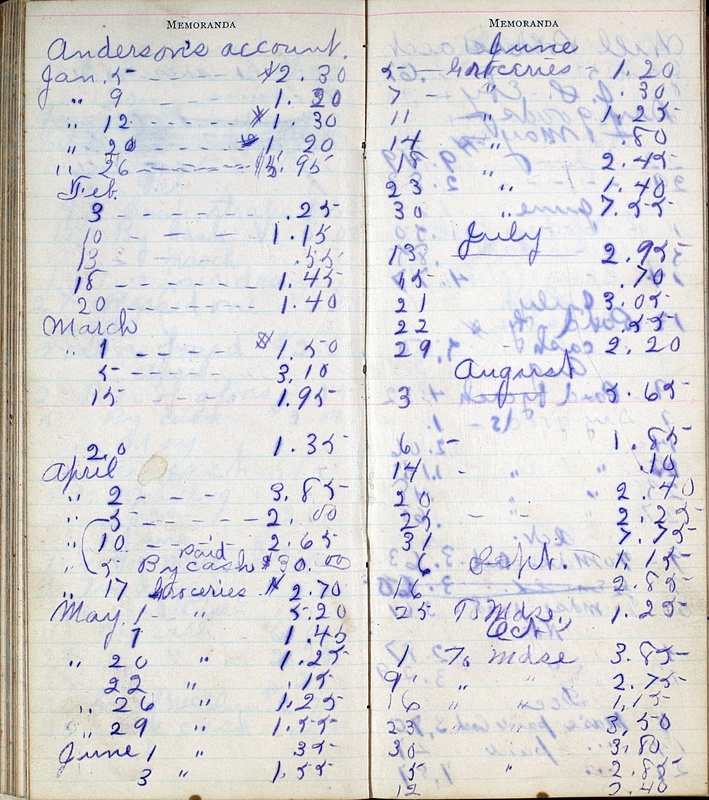 MEMORANDA
Anderson's account.
Jan 5 - - - $2.30
" 9 1.20
" 12 - - - $1.30
" 20 - - - $1.20
" 26 - - - - $5.95
Feb.
3 - - - - .25
10 - - - - 1.15
13 - - - .55
18 - - - - - 1.45
20 - - - - 1.40
March
" 1 - - - - $1.50
5 - - - - 3.10
15 - - - 1.95
20 1.35
April
" 2 - - - 3.85
" 5 - - - - - 2.00
" 10 - - - 2.65
" 5 By cash paid $30.00
" 17 Groceries $2.70
May 1 - " 5.20
7 1.45
" 20 " 1.25
22 " .15
" 26 " 1.25
" 29 " 1.55
June 1 " 35
3 " 1.55
MEMORANDA
June
5 - Groceries - 1.20
7 - " .30
11 " 1.25
14 " .80
18 " 2.45
23 " 1.40
30 " 7.55
July
13 2.95
15 .70
21 3.05
22 55
29 - 2.20
August
3 5.65
6 1.85
14 - .10
20 2.40
25 - - 2.25
31 7.75
6 Sept. - 1.15
16 2.85
25 To Mdse, 1.25
Oct.
1 To mdse 3.85
9 " " 2.75
16 " " 1.15
23 3.50
30 3.80
5 " 2.85
12 2.40